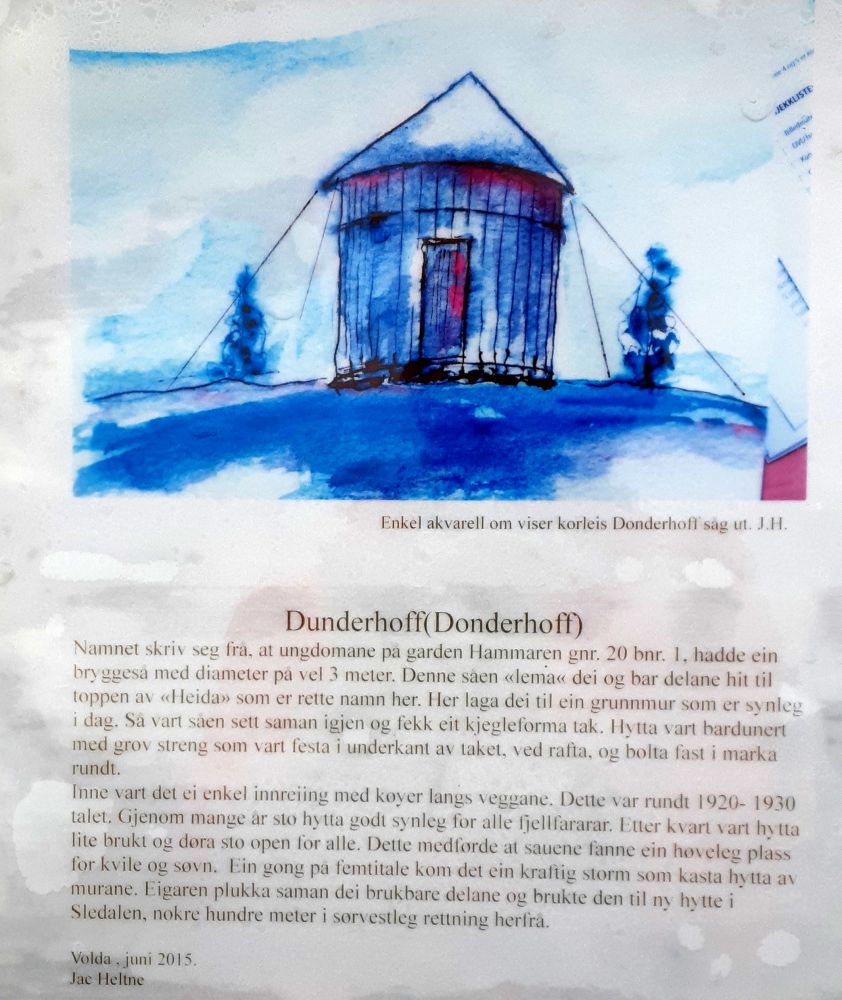 JEKKLISTE
Enkel akvarell om viser korleis Donderhoff såg ut. J.H.
Dunderhoff(Donderhoff)
Namnet skriv seg frå, at ungdomane på garden Hammaren gnr. 20 bnr. 1, hadde ein
bryggeså med diameter på vel 3 meter. Denne såen «lema« dei og bar delane hit til
toppen av «Heida» som er rette namn her. Her laga dei til ein grunnmur som er synleg
i dag. Så vart såen sett saman igjen og fekk eit kjegleforma tak. Hytta vart bardunert
med grov streng som vart festa i underkant av taket, ved rafta, og bolta fast i marka
rundt.
Inne vart det ei enkel innreiing med køyer langs veggane. Dette var rundt 1920- 1930
talet. Gjenom mange år sto hytta godt synleg for alle fjellfararar. Etter kvart vart hytta
lite brukt og døra sto open for alle. Dette medførde at sauene fanne ein høveleg plass
for kvile og søvn. Ein gong på femtitale kom det ein kraftig storm som kasta hytta av
murane. Eigaren plukka saman dei brukbare delane og brukte den til ny hytte i
Sledalen, nokre hundre meter i sørvestleg rettning herfrå.
Volda , juni 2015.
Jac Heltne